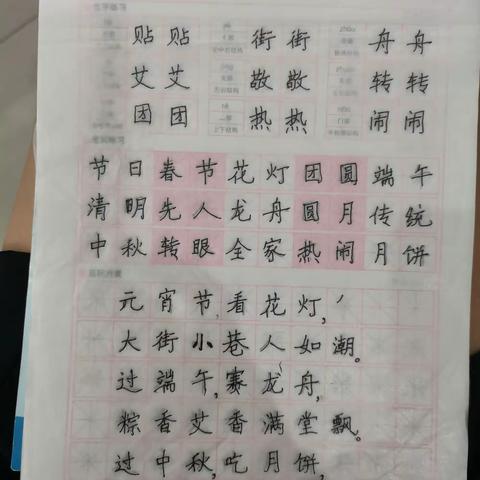 贴 贴 街 街 舟 舟
艾 艾 敬 敬 转 转
团 团 热 热 闹 闹
节 日 春 节 花 灯 团 圆 端 午
清 明 先 人 龙 舟 圆 月 传 统
中 秋 转 眼 全 家 热 闹 月 饼
元宵节,看花灯,
大街小巷人如潮。
过端午,赛龙舟,
粽香艾香满堂飘。
过中秋,吃月饼,